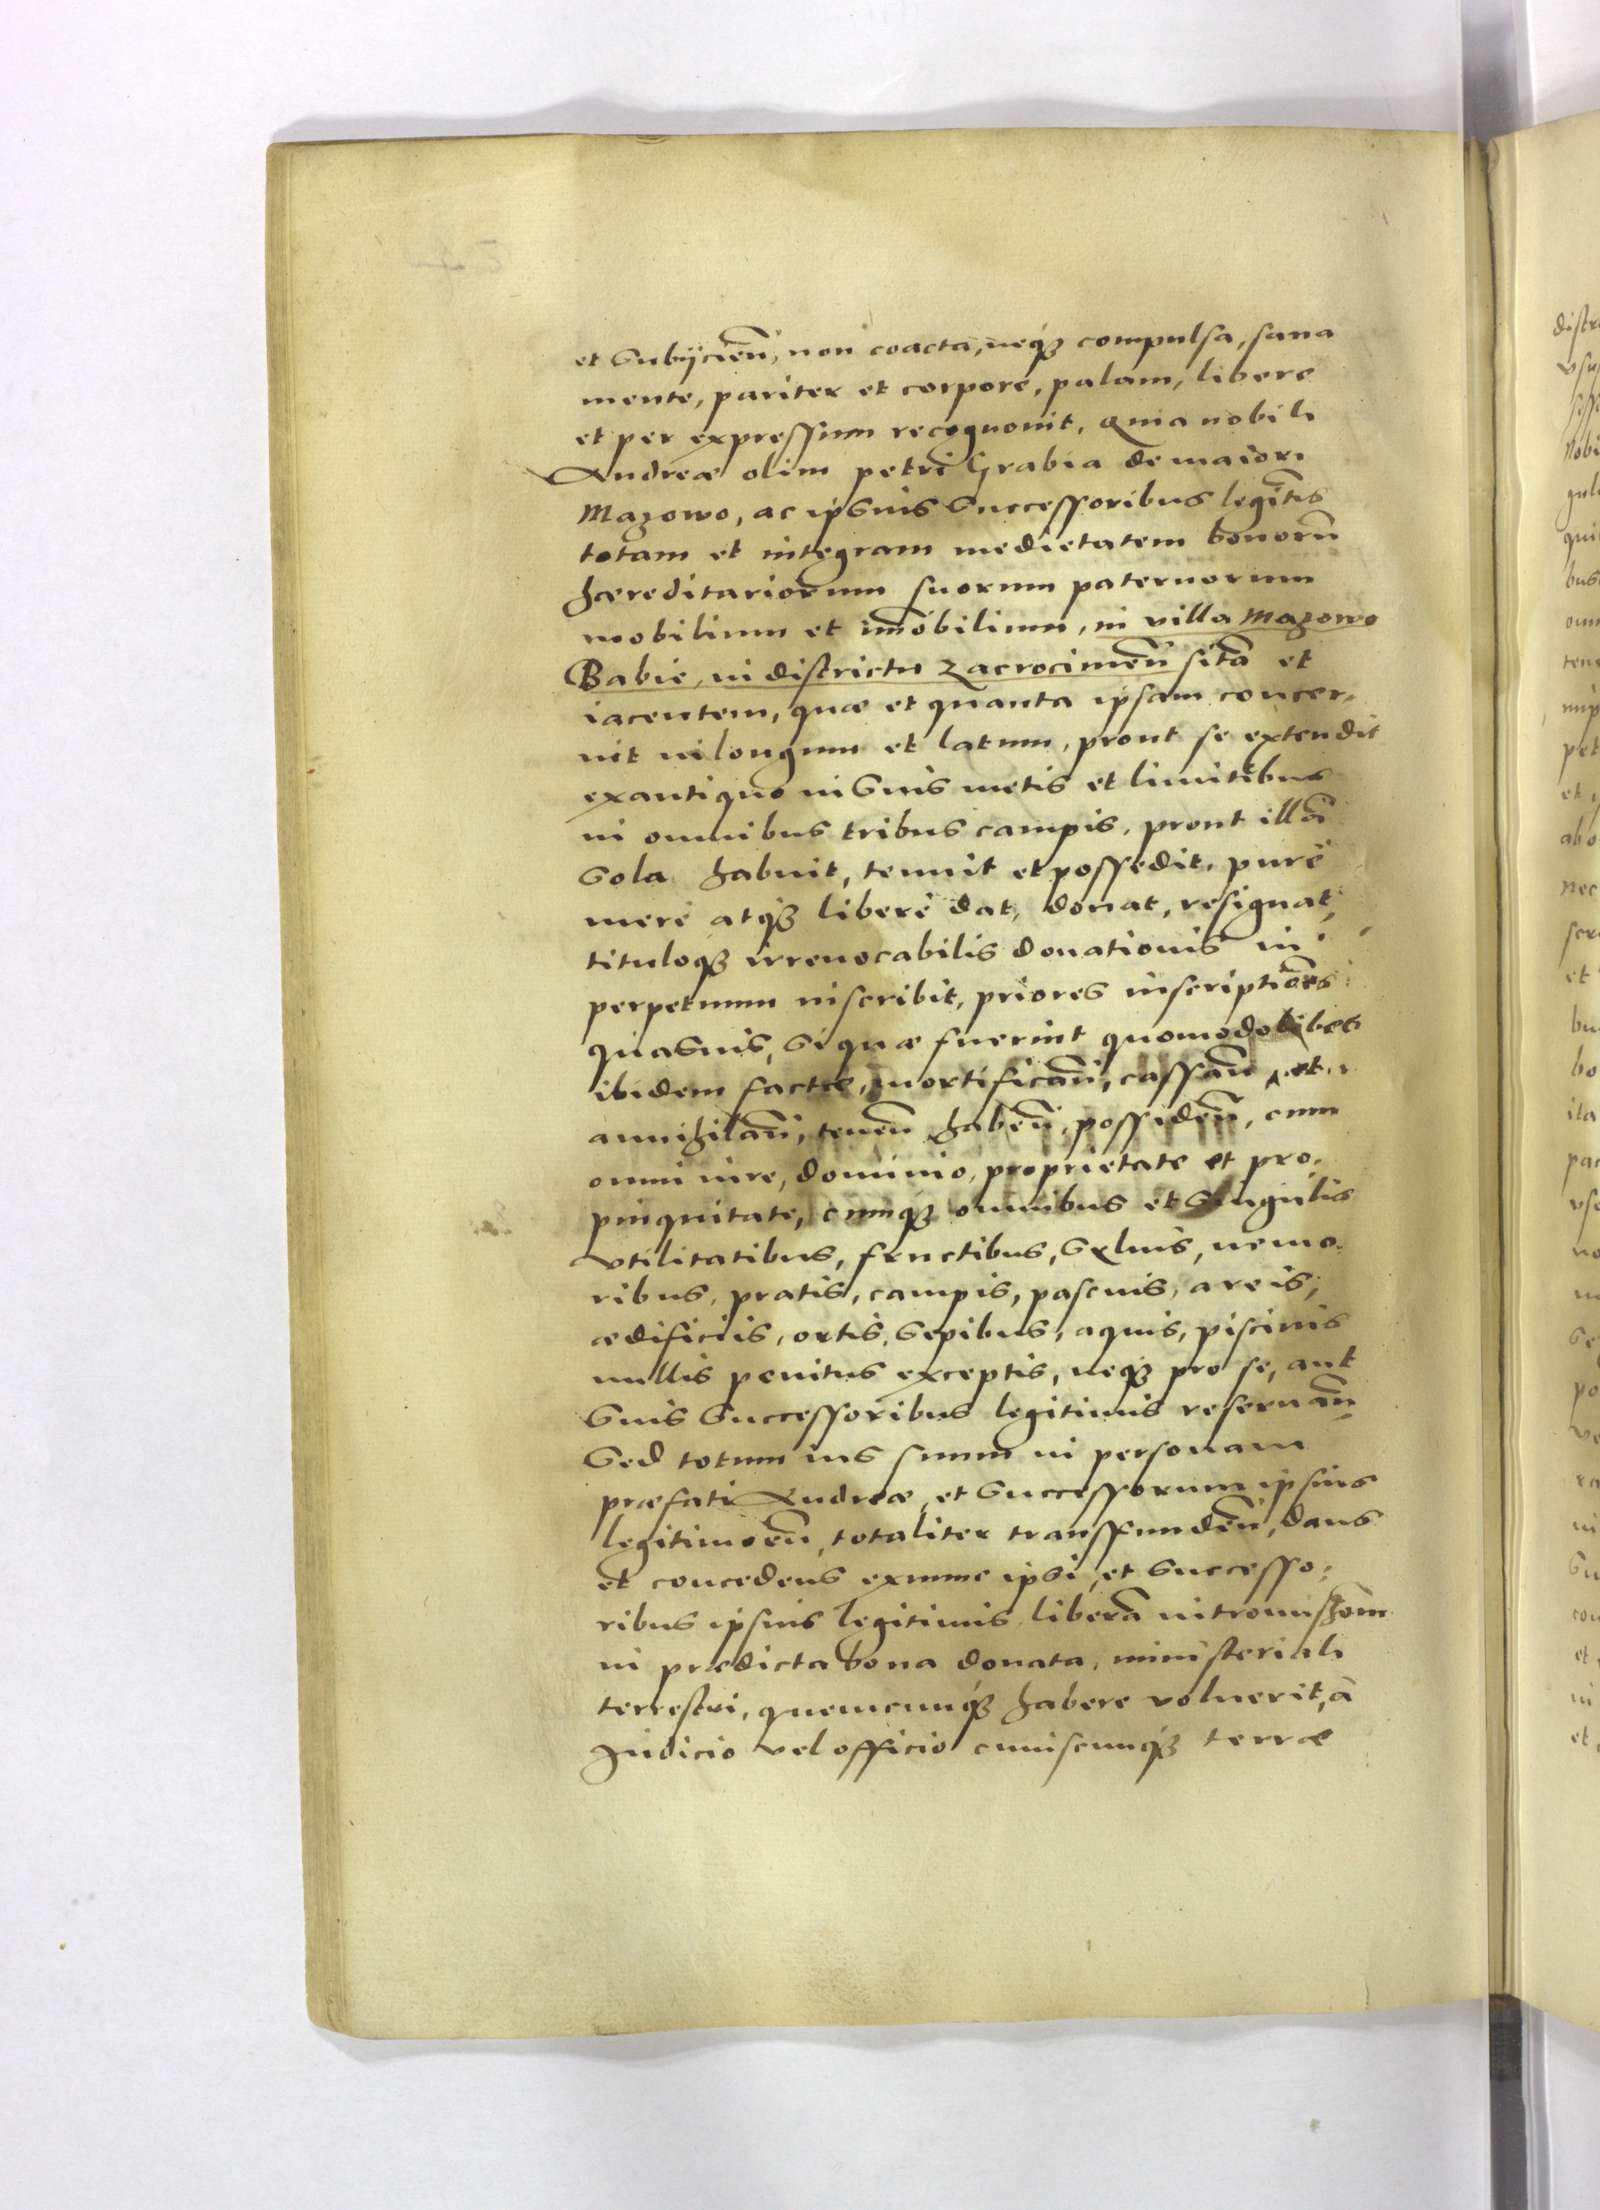 et Subijcień, non coacta, neqȝ compulsa, sana
mente, pariter et corpore, palam, libere
et per expressum recognouit, Quia nobili
Andreæ olim petri Grabia de maiori
Mazowo, ac ipsius Successoribus legitīs
totam et integram medietatem bonorū
hæreditariorum suorum paternorum
mobilium et im̄obilium, in villa Mazowo
Babie, in districtu Zacrocimeń sitā et
iacentem, quæ et quanta ipsam concer-
nit in longum et latum, prout se extendit
ex antiquo in Suis metis et limitibus
in omnibus tribus campis, prout illā
Sola habuit, tenuit et possedit, purè
merè atqȝ liberè dat, donat, resignat,
tituloqȝ irreuocabilis donationis in
perpetuum inscribit, priores inscriptiōes
quasuis, Si quæ fuerint quomodolibet
ibidem factæ, mortificań, cassań et
annihilań, teneń habeń, possideń, cum
omni iure, dominio, proprietate et pro-
pinquitate, cumqȝ omnibus et Singulis
vtilitatibus, fructibus, Syluis, nemo-
ribus, pratis, campis, pascuis, areis,
ædificiis, ortis, Sepibus, aquis, piscinis
nullis penitus exceptis, neqȝ pro se, aut
Suis Successoribus legitimis reseruań
Sed totum ius suum in personam
præfati Andreæ, et Successorum ipsius
legitimorū, totaliter transfundeń, dans
et concedens exnunc ipsi, et Successo-
ribus ipsius legitimis, liberā intromissiōem
in prædicta bona donata, ministeriali
terrestri, quemcunqȝ habere voluerit, à
Judicio vel officio cuiuscunqȝ terræ